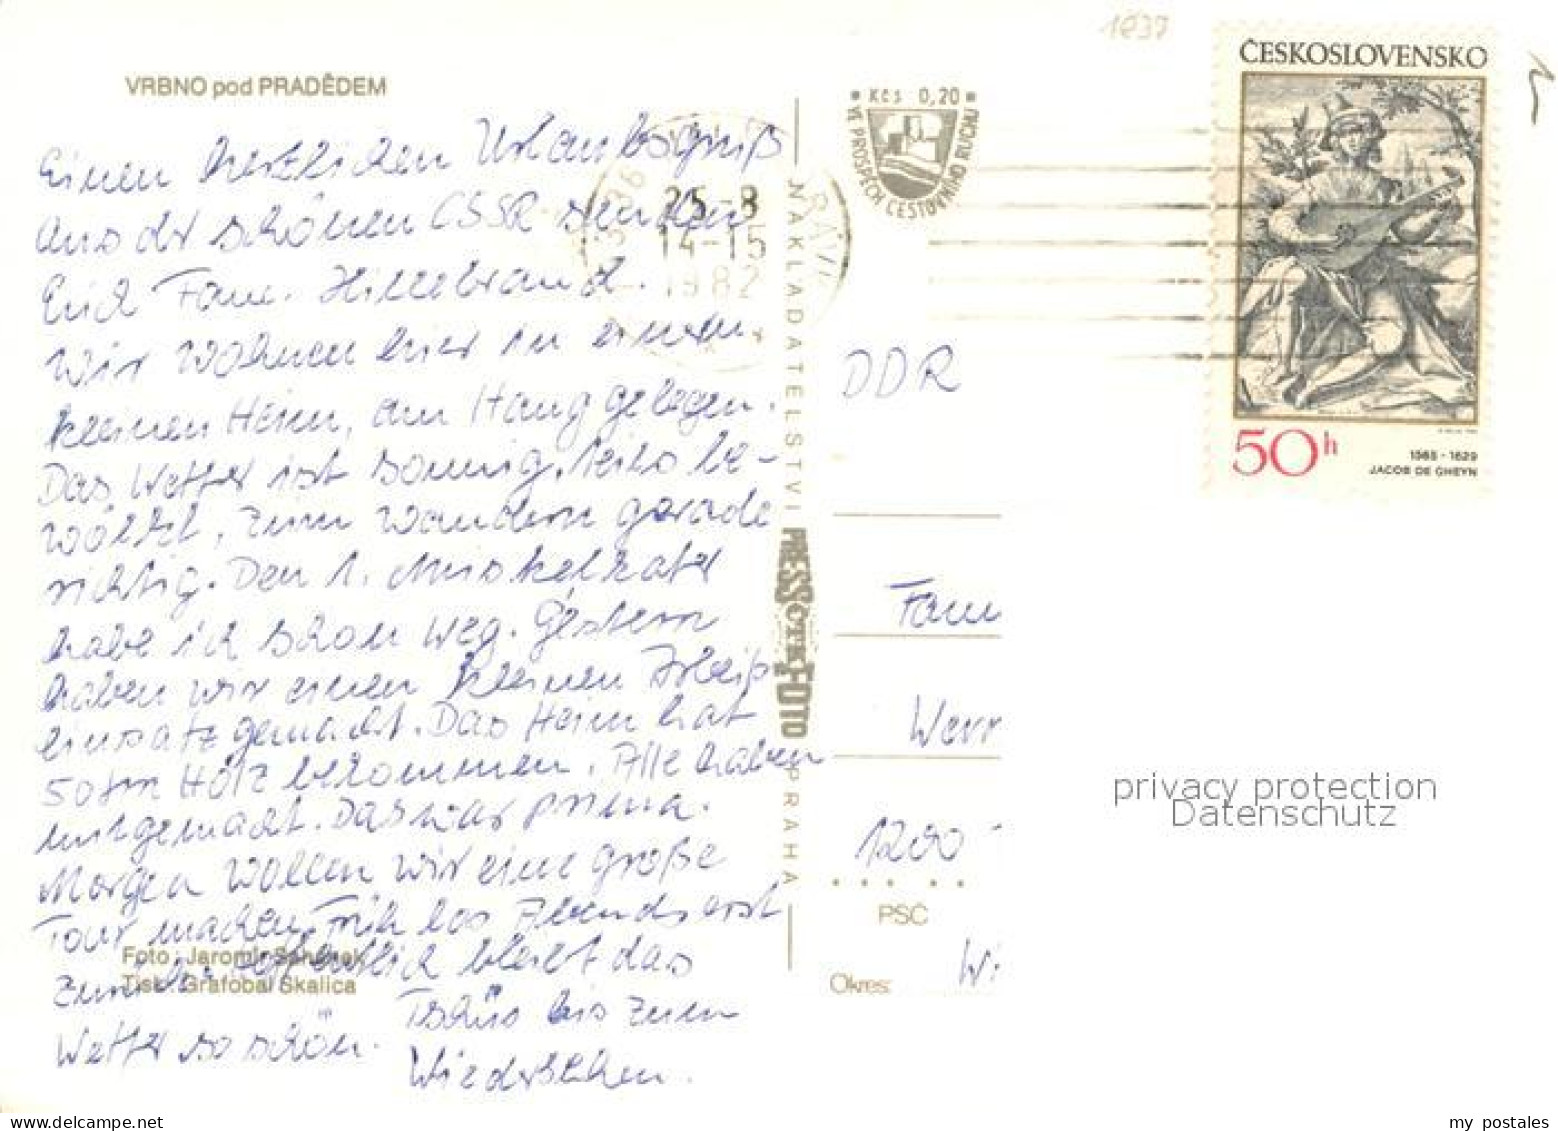 1237
VRBNO pod PRADĚDEM
Einen herzlichen Urlaubsgruß
aus der schönen CSSR senden
Euch Fam. Hillebrand.
Wir wohnen hier in einem
kleinen Heim, am Hang gelegen.
Das Wetter ist sonnig, teils be-
wölkt, zum Wandern gerade
richtig. Den 1. Muskelkater
habe ich schon weg. Gestern
haben wir einen kleinen Arbeits
einsatz gemacht. Das Heim hat
50 fm Holz bekommen. Alle haben
mitgemacht. Das war prima.
Morgen wollen wir eine große
Tour machen, Früh los Abends erst
zurück. Hoffentlich bleibt das
Wetter so schön.
Tschüs bis zum
Wiedersehen.
Foto: Jaromír
Tisk: Grafobal Skalica
NAKLADATELSTVÍ PRESSFOTO PRAHA
ČTK
25-8
14-15
1982
Kčs 0,20
VE PROSPĚCH CESTOVNÍHO RUCHU
ČESKOSLOVENSKO
50h
1565 - 1629
JACOB DE GHEYN
DDR
Fam
Werr
1200
PSČ
Okres:
privacy protection
Datenschutz
my postales